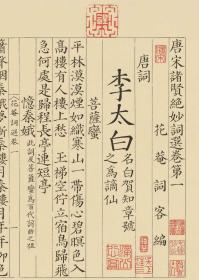 唐宋諸賢絕妙詞選卷第一
花菴詞客編
唐詞
李太白 名白賀知章號
之為謫仙
菩薩蠻
平林漠漠煙如織寒山一帶傷心碧暝色入
高樓有人樓上愁 玉梯空佇立宿鳥歸飛
急何處是歸程長亭連短亭
憶秦娥 此詞及菩薩蠻為百代詞曲之祖
花菴詞選卷一
簫聲咽秦娥夢斷秦樓月秦樓月年年柳色